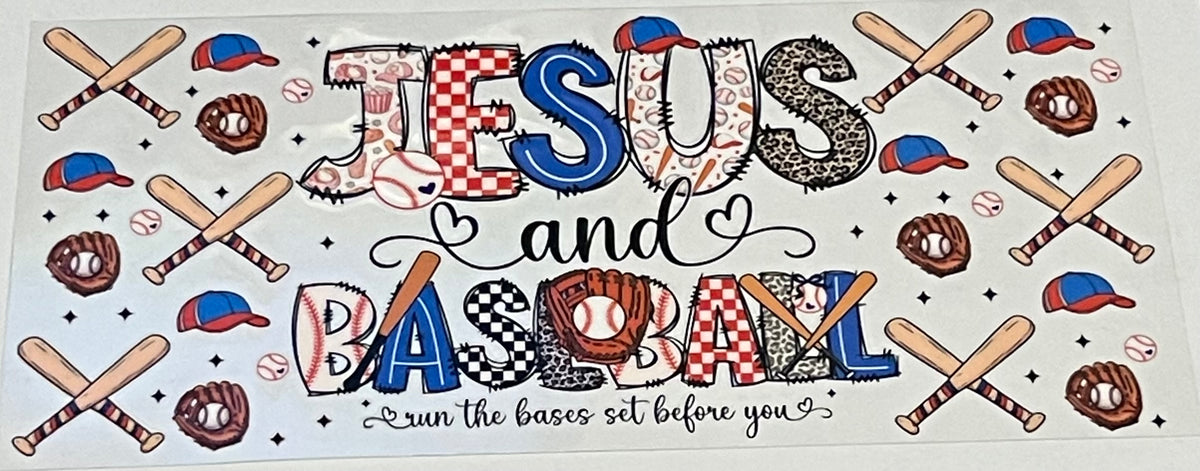 JESUS
and
BASEBALL
run the bases set before you